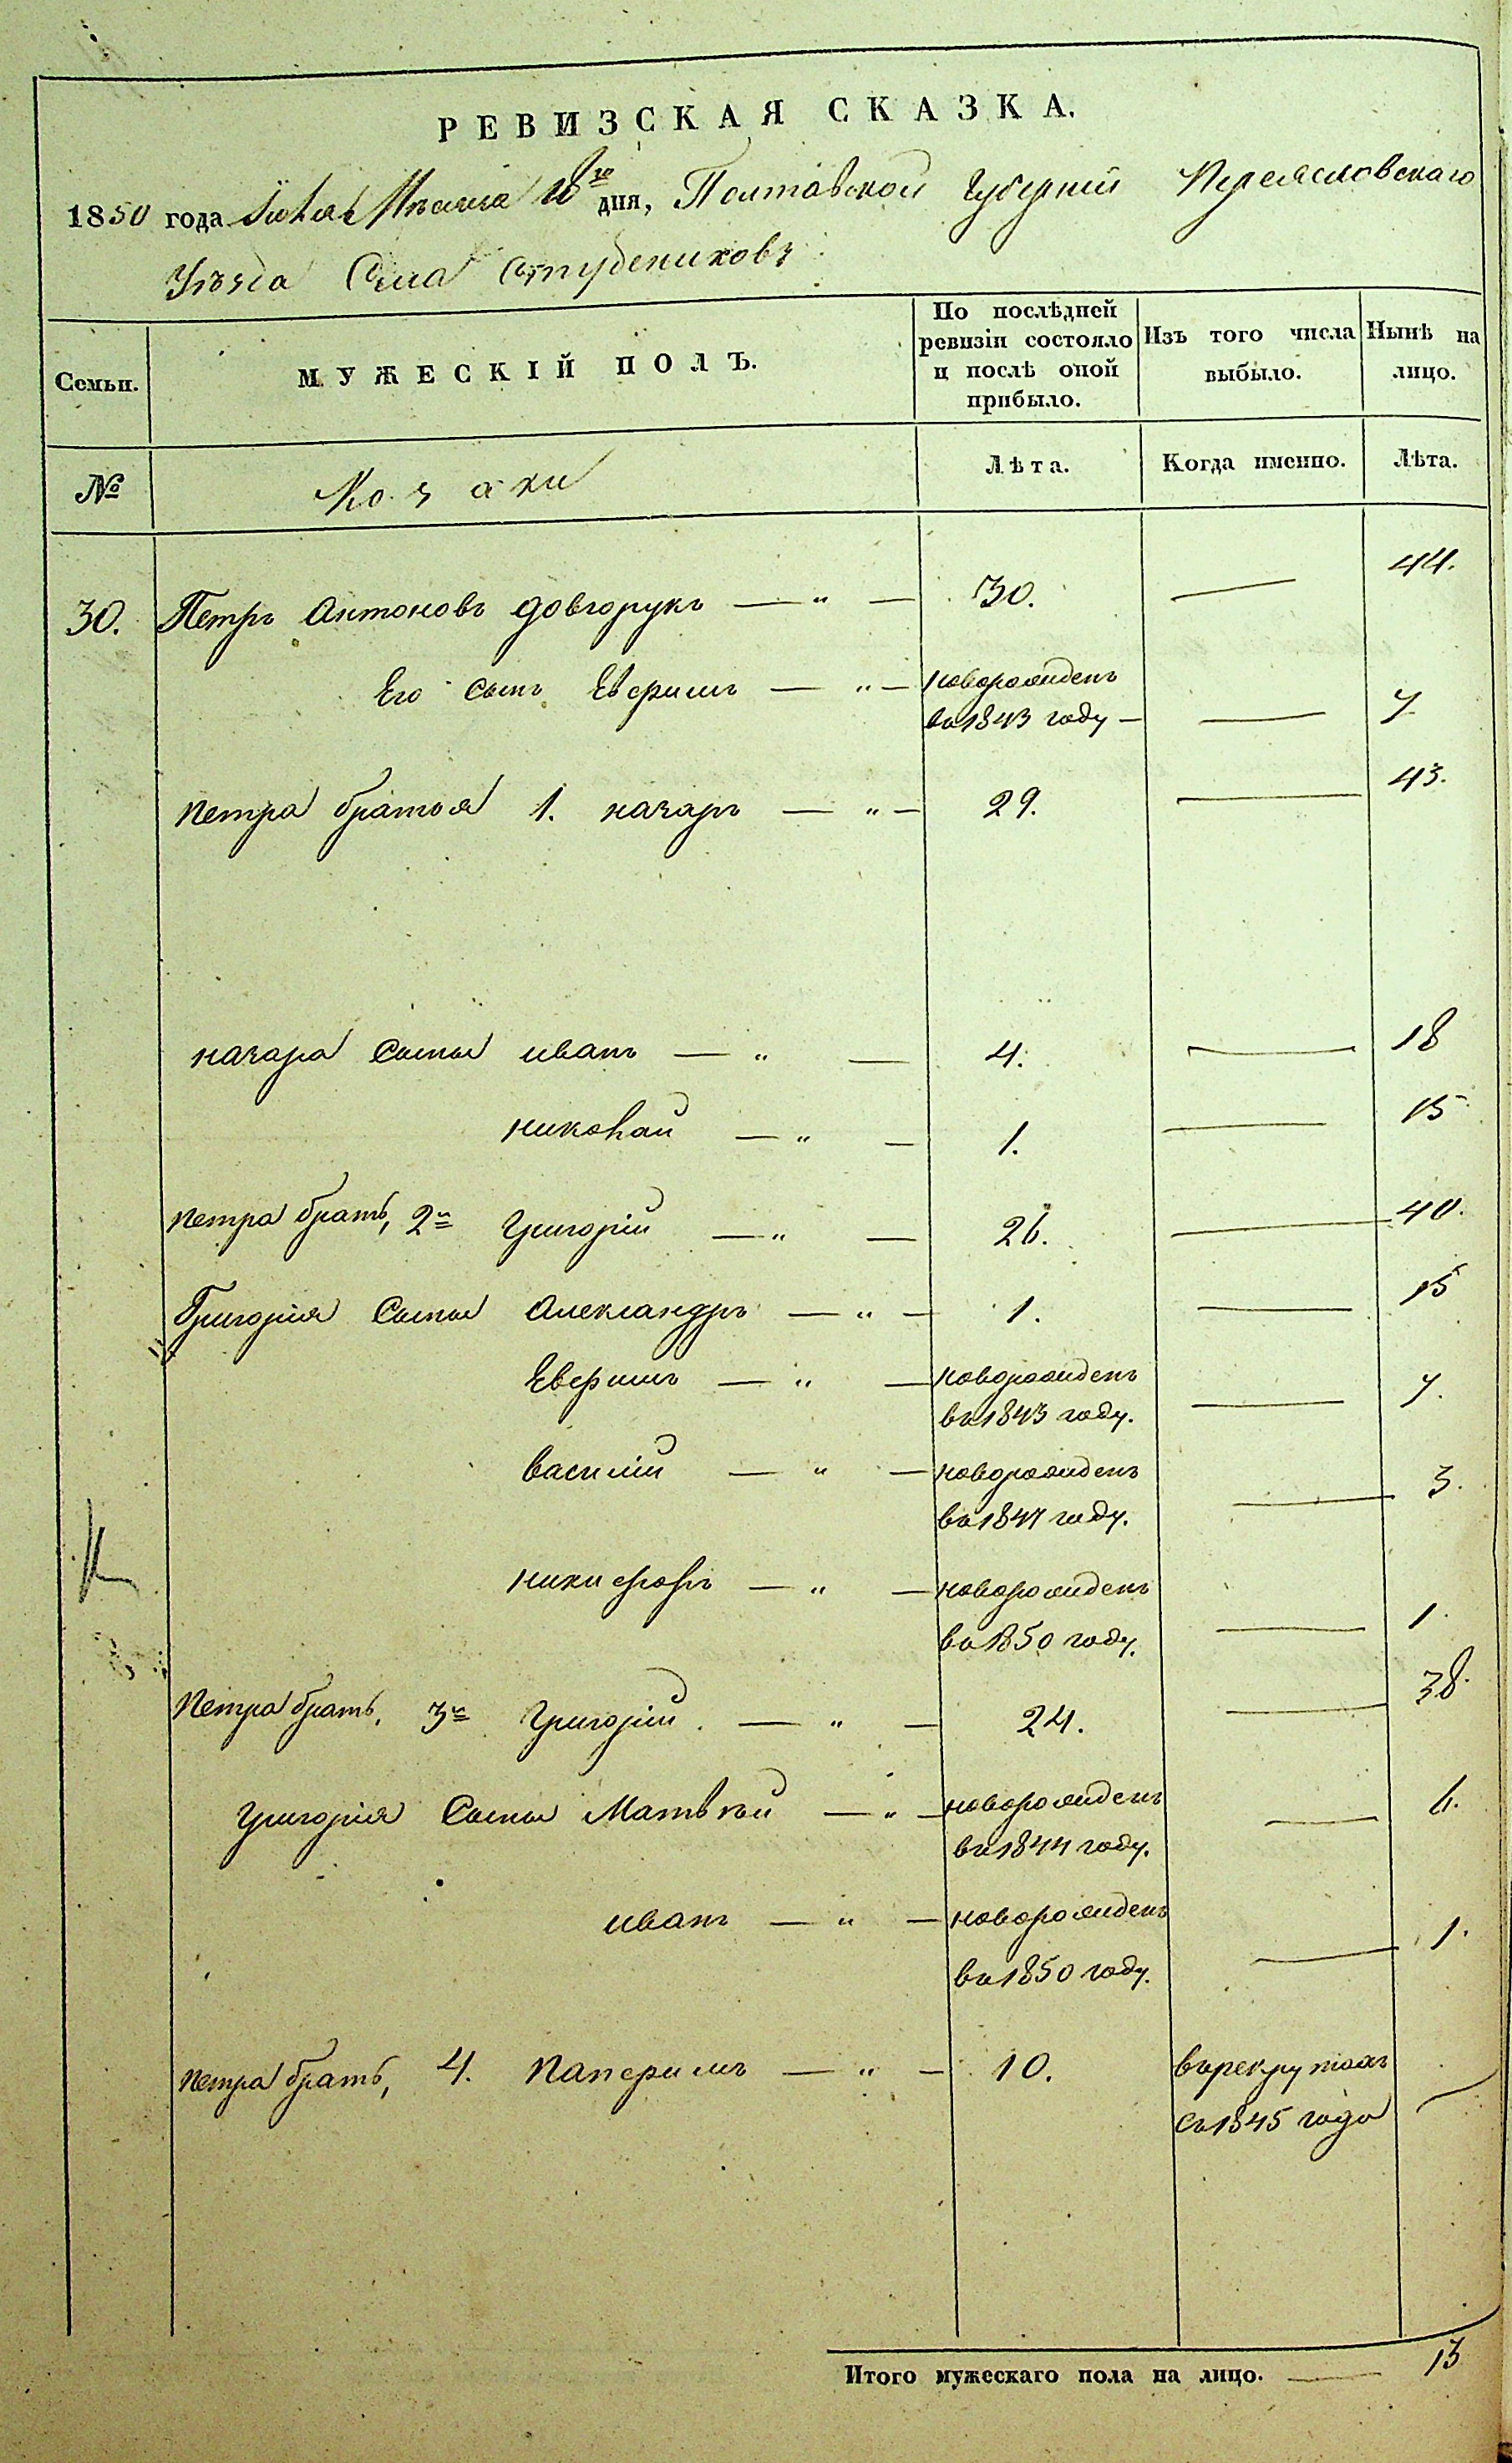 РЕВИЗСКАЯ СКАЗКА.
1850 года Іюля Мѣсяца 10го дня, Полтавской Губерніи Переясловскаго
Уѣзда Села Студениковъ
Семьи. МУЖЕСКІЙ ПОЛЪ. По послѣдней ревизіи состояло и послѣ оной прибыло. Изъ того числа выбыло. Нынѣ на лицо.
№ Козаки Лѣта. Когда именно. Лѣта.
30. Петръ Антоновъ Довгорукъ — „ — 30. — 44.
Его сынъ Евфимъ — „ — новорожденъ
въ 1843 году — — 7
Петра братья 1. Назаръ — „ — 29. — 43.
Назара сыны Иванъ — „ — 4. — 18
Николай — „ — 1. — 15
Петра братъ, 2й Григорій — „ — 26. — 40.
Григорія сыны Александръ — „ — 1. — 15
Евфимъ — „ — новорожденъ
въ 1843 году. — 7.
Василій — „ — новорожденъ
въ 1847 году. — 3.
Никифоръ — „ — новорожденъ
въ 1850 году. — 1.
Петра братъ, 3й Григорій — „ — 24. — 38.
Григорія сыны Матвѣй — „ — новорожденъ
въ 1844 году. — 6.
Иванъ — „ — новорожденъ
въ 1850 году. — 1.
Петра братъ, 4. Панфимъ — „ — 10. въ рекрутахъ
съ 1845 года —
Итого мужескаго пола на лицо. — 13